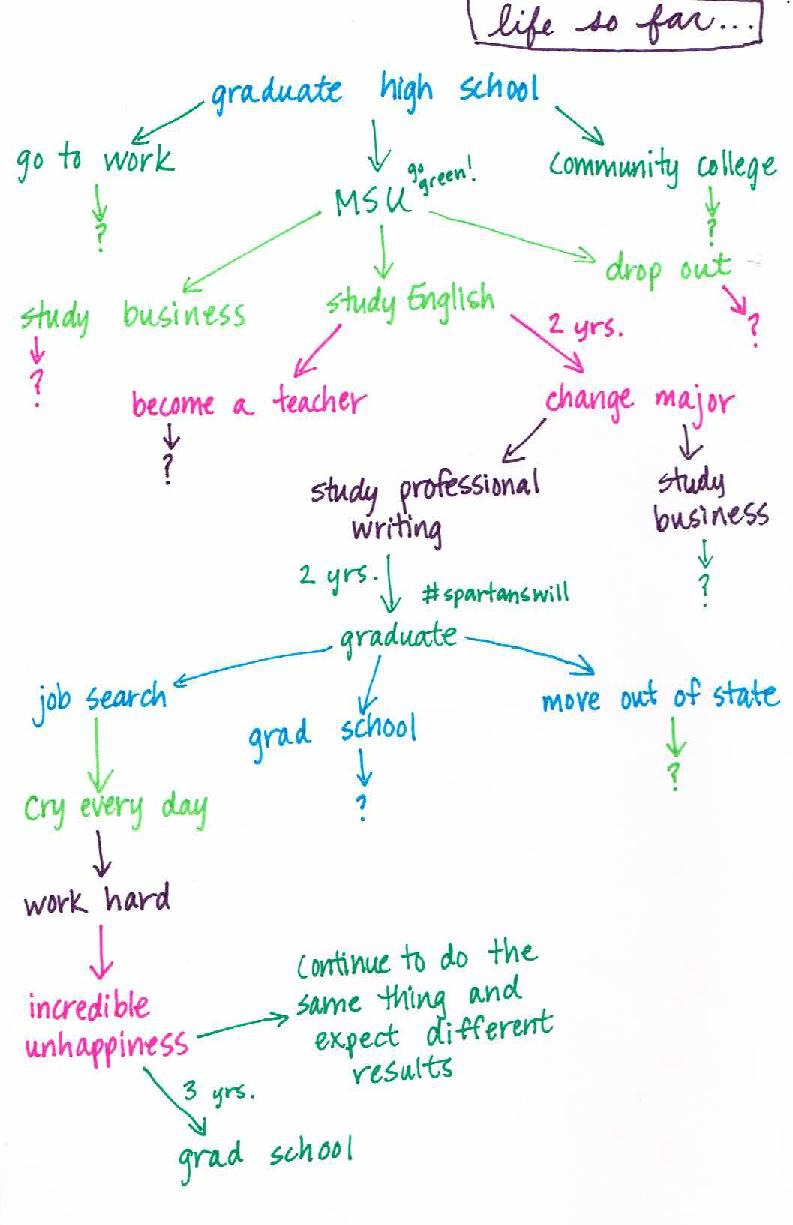 life so far...
graduate high school
go to work
community college
?
MSU go green!
?
study business
study English
drop out
?
2 yrs.
?
become a teacher
change major
?
study professional
writing
study
business
2 yrs.
#spartanswill
?
graduate
job search
grad school
move out of state
?
?
Cry every day
work hard
incredible
unhappiness
Continue to do the
same thing and
expect different
results
3 yrs.
grad school